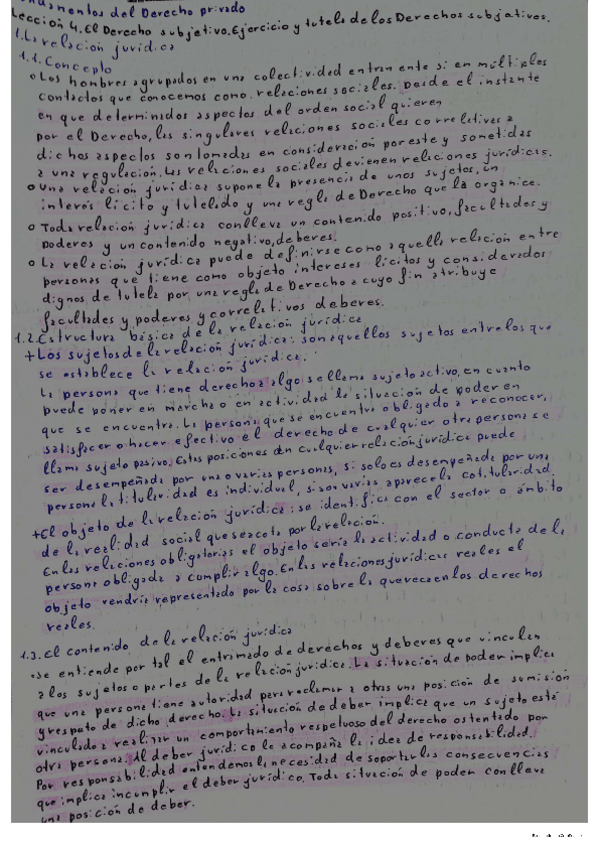 Fundamentos del Derecho privado
Lección 4. El Derecho subjetivo. Ejercicio y tutela de los Derechos subjetivos.
1. La relación jurídica
1.1. Concepto
o Los hombres agrupados en una colectividad entran entre sí en múltiples
contactos que conocemos como relaciones sociales. Desde el instante
en que determinados aspectos del orden social quieren
por el Derecho, las singulares relaciones sociales correlativas a
dichos aspectos son tomadas en consideración por este y sometidas
a una regulación. Las relaciones sociales devienen relaciones jurídicas.
o Una relación jurídica supone la presencia de unos sujetos, un
interés lícito y tutelado y una regla de Derecho que la organice.
o Toda relación jurídica conlleva un contenido positivo, facultades y
poderes y un contenido negativo, deberes.
o La relación jurídica puede definirse como aquella relación entre
personas que tiene como objeto intereses lícitos y considerados
dignos de tutela por una regla de Derecho a cuyo fin atribuye
facultades y poderes y correlativos deberes.
1.2. Estructura básica de la relación jurídica
+ Los sujetos de la relación jurídica: son aquellos sujetos entre los que
se establece la relación jurídica.
La persona que tiene derecho a algo se llama sujeto activo, en cuanto
puede poner en marcha o en actividad la situación de poder en
que se encuentra. La persona que se encuentra obligada a reconocer,
satisfacer o hacer efectivo el derecho de cualquier otra persona se
llama sujeto pasivo. Estas posiciones en cualquier relación jurídica puede
ser desempeñada por una o varias personas, si solo es desempeñada por una
persona la titularidad es individual, si son varias aparece la cotitularidad.
+ El objeto de la relación jurídica: se identifica con el sector o ámbito
de la realidad social que se acota por la relación.
En las relaciones obligatorias el objeto sería la actividad o conducta de la
persona obligada a cumplir algo. En las relaciones jurídicas reales el
objeto vendría representado por la cosa sobre la que recaen los derechos
reales.
1.3. El contenido de la relación jurídica
• Se entiende por tal el entramado de derechos y deberes que vinculan
a los sujetos o partes de la relación jurídica. La situación de poder implica
que una persona tiene autoridad para reclamar a otras una posición de sumisión
y respeto de dicho derecho. La situación de deber implica que un sujeto está
vinculado a realizar un comportamiento respetuoso del derecho ostentado por
otra persona. Al deber jurídico le acompaña la idea de responsabilidad.
Por responsabilidad entendemos la necesidad de soportar las consecuencias
que implica incumplir el deber jurídico. Toda situación de poder conlleva
una posición de deber.